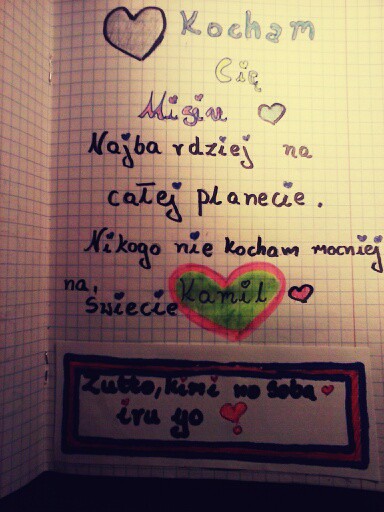 Kocham
Cię
Misiu
Najbardziej na
całej planecie.
Nikogo nie kocham mocniej
na świecie Kamil
Zutto, kimi no soba
iru yo